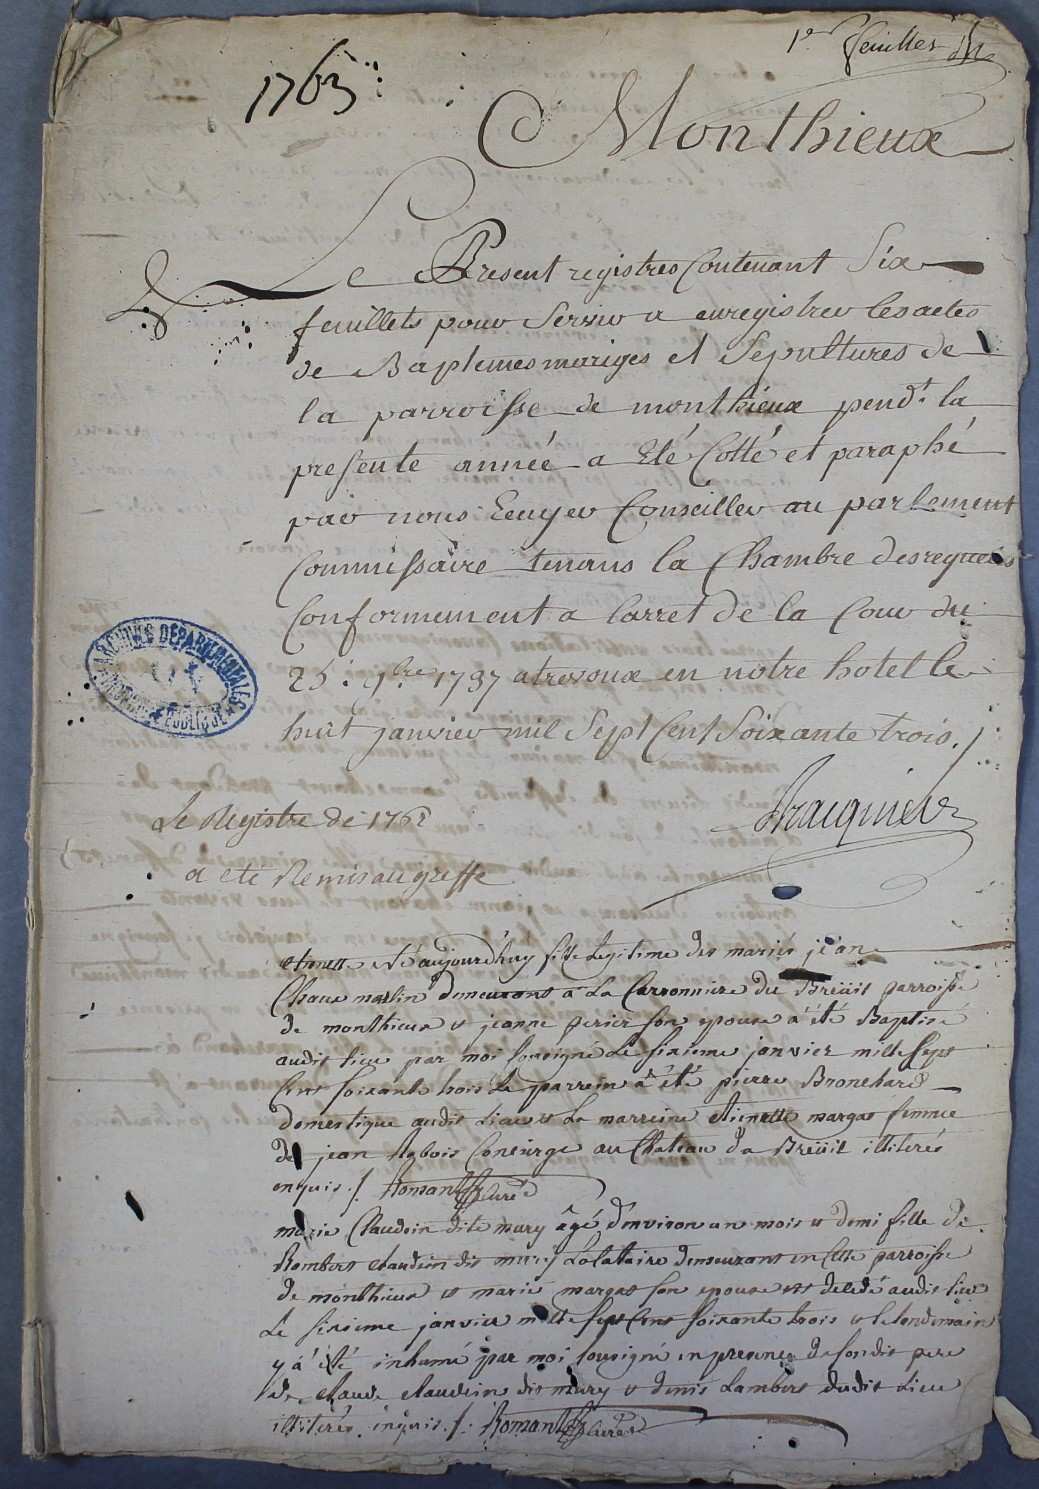 1er feuillet
1763
Monthieux
Le Present registres Contenant Six
feuillets pour Servir a enregistrer les actes
de Baptemes mariges et Sepultures de
la parroisse de monthieux pendt. la
presente année a Eté Cotté et paraphé
par nous Ecuyer Conseiller au parlement
Commissaire tenans la Chambre des requetes
Conformement a larret de la Cour du
25: 9bre 1737 a trevoux en notre hotel le
huit janvier mil Sept Cent Soixante trois./
ARCHIVES DEPARTEMENTALES
Le Registre de 1762
a eté Remis au greffe
née aujourd'huy fille Legitime des mariés jean
Chaux demeurant à La Carronniere du Breüit parroisse
de monthieux et jeanne perier son epouse a été Baptisé
audit lieu par moi sousigné Le sixieme janvier mille sept
Cent soixante trois Le parrein à été pierre Bronchard
domestique audit Lieu et La marreine etienette margas femme
de jean Conciurge au Chateau du Breüil illiterés
enquis./. Romant Curé
marie Claudein dite mury âgé d'environ un mois et demi fille de
Rombert claudein dit mury demeurant en Cette parroisse
de monthieux et marie margas son epouse est decedé audit lieu
Le sixieme janvier mille sept Cent soixante trois et le lendemain
y a été inhumé par moi sousigné en presence de sondit pere
de claude claudein dit mury et denis Lambert dudit Lieu
illiterés enquis./. Romant Curé